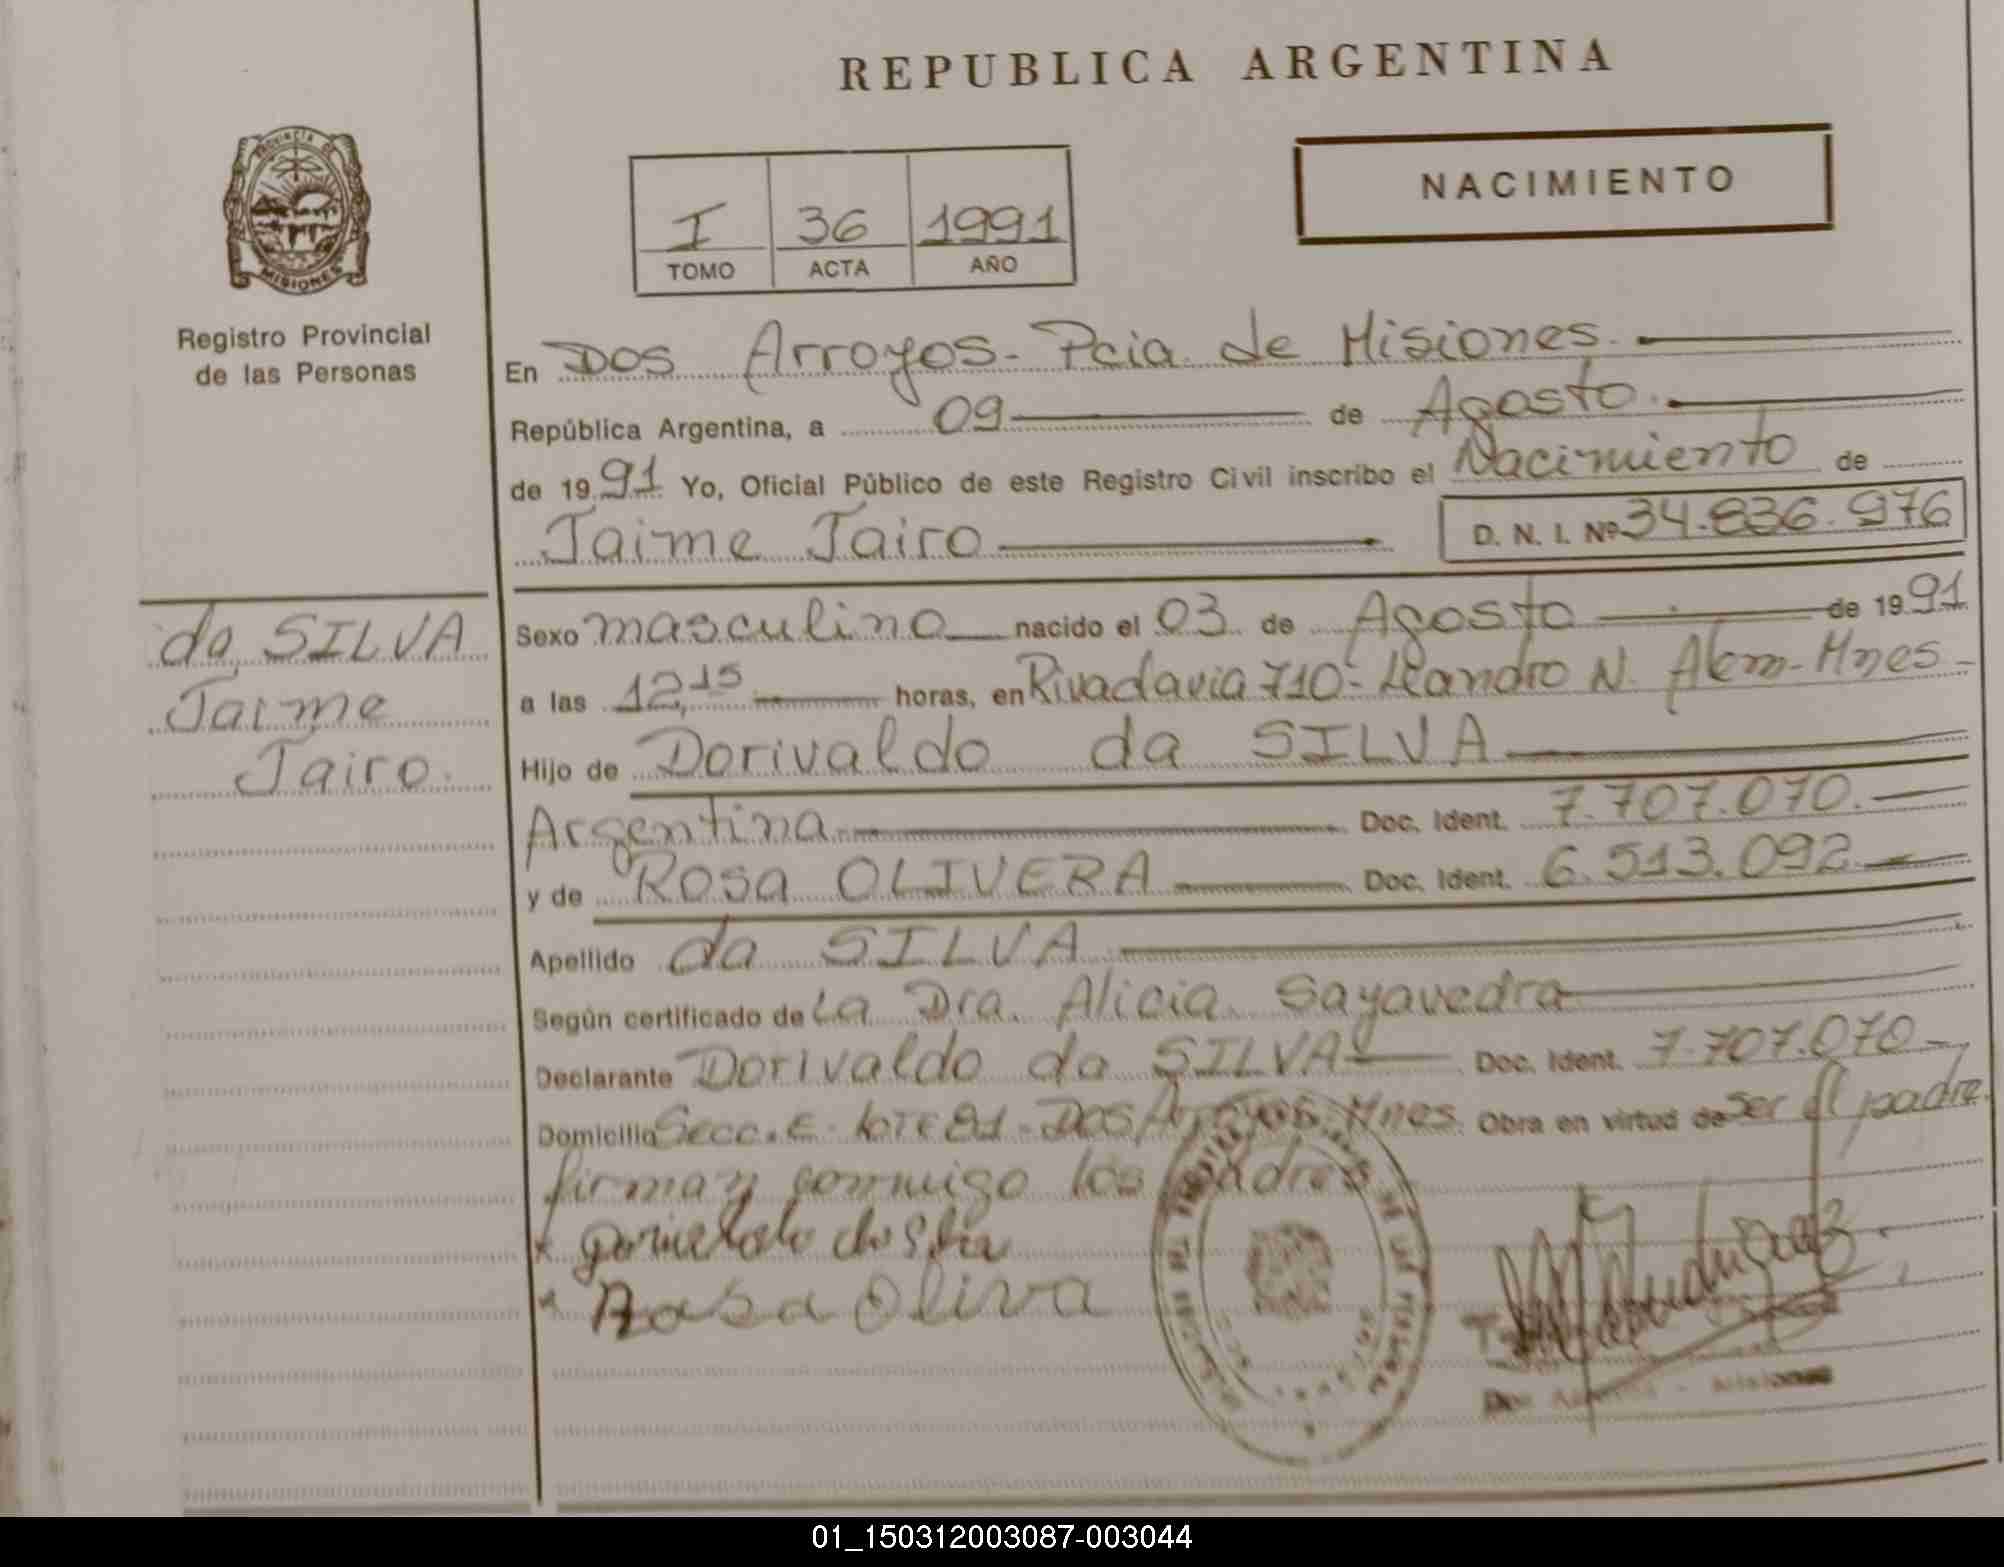 REPUBLICA ARGENTINA
PROVINCIA DE
MISIONES
Registro Provincial
de las Personas
I 36 1991
TOMO ACTA AÑO
NACIMIENTO
En Dos Arroyos - Pcia. de Misiones.
República Argentina, a 09 de Agosto.
de 1991 Yo, Oficial Público de este Registro Civil inscribo el Nacimiento de
Jaime Jairo D. N. I. Nº 34.836.976
da SILVA
Jaime
Jairo.
Sexo masculino nacido el 03 de Agosto de 1991
a las 12,15 horas, en Rivadavia 710 - Leandro N. Alem - Mnes -
Hijo de Dorivaldo da SILVA
Argentina Doc. Ident. 7.707.070.
y de Rosa OLIVERA Doc. Ident. 6.513.092
Apellido da SILVA
Según certificado de La Dra. Alicia Sayavedra
Declarante Dorivaldo da SILVA Doc. Ident. 7.707.070
Domicilio Secc. E - Lote 81 - Dos Arroyos. Mnes. Obra en virtud de Ser el padre.
firman conmigo los padres
Rosa Oliva
Misiones
01_150312003087-003044